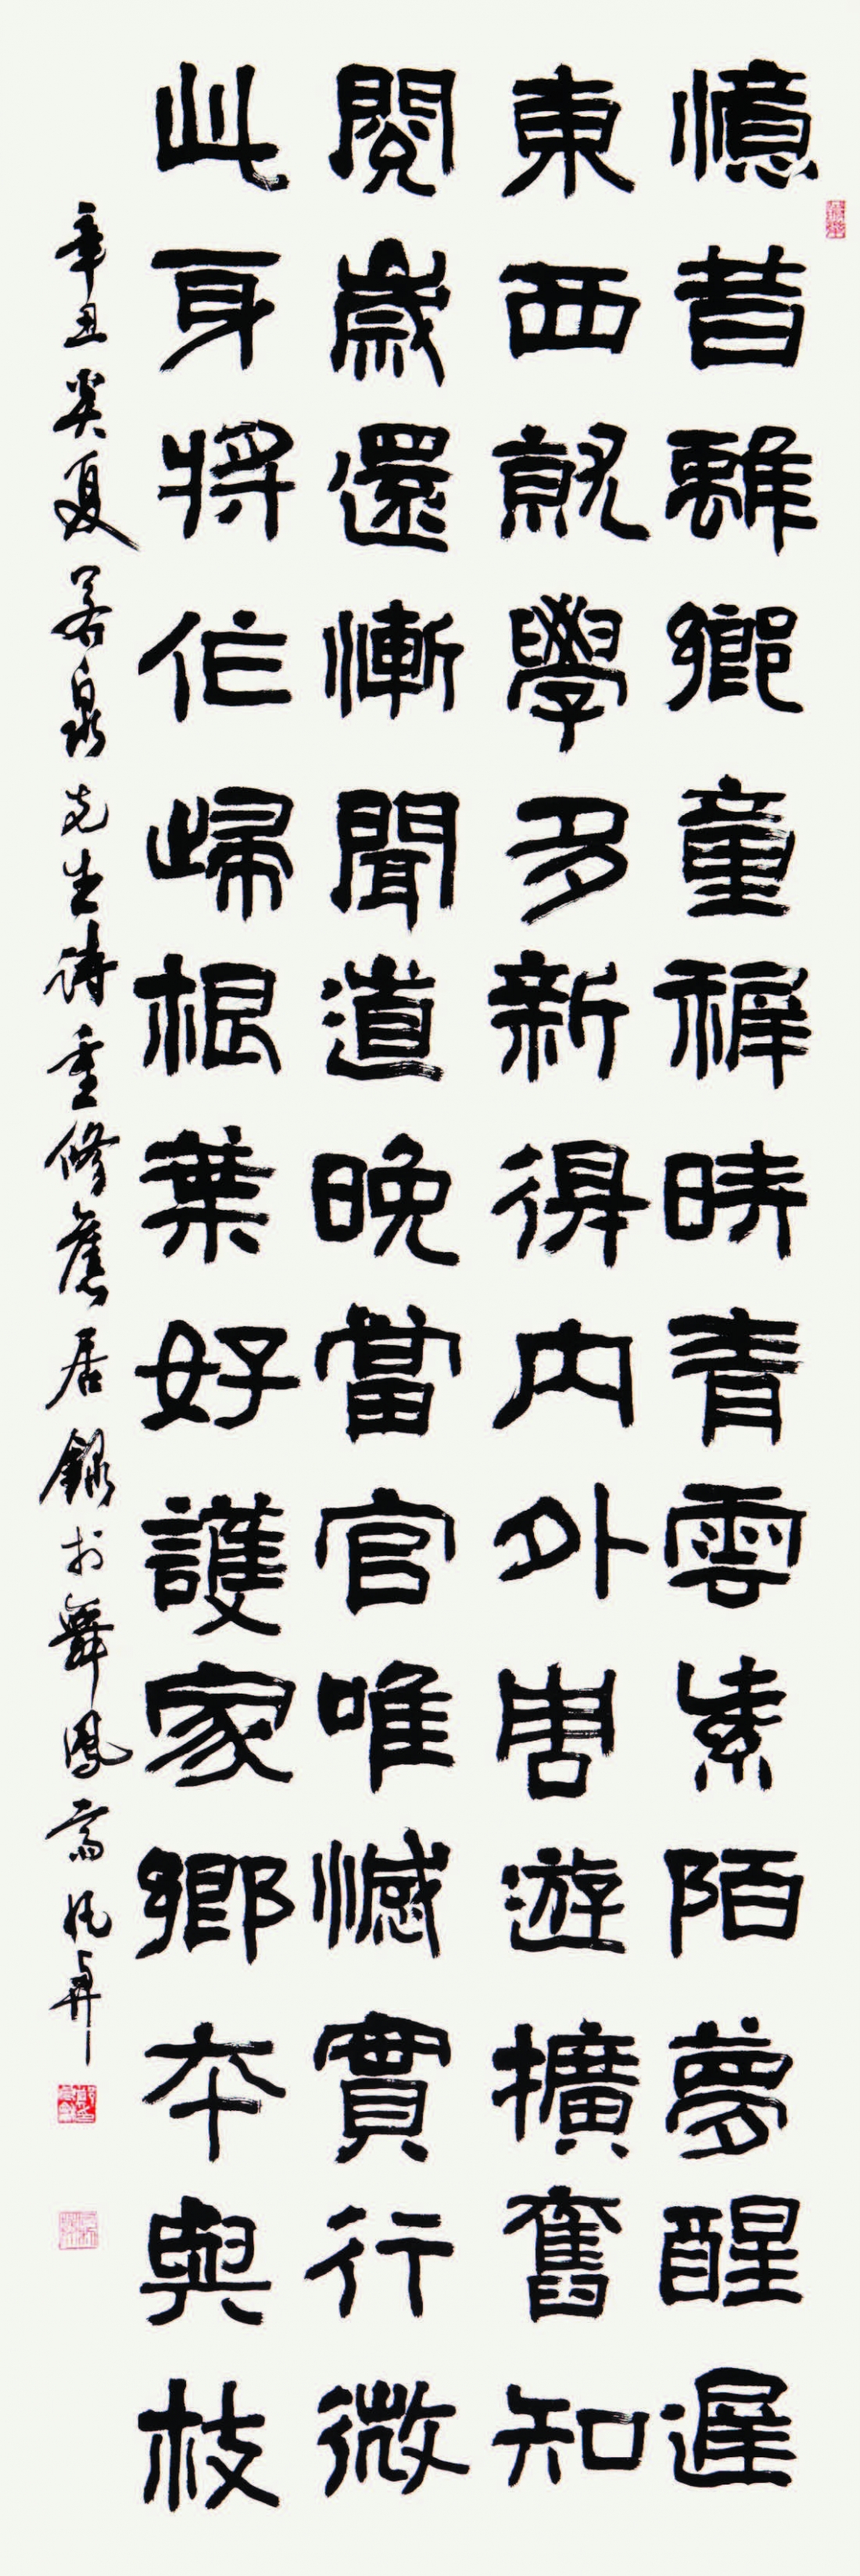 憶昔離鄉童稺時青雲紫陌夢醒遲
東西就學多新得內外周遊擴舊知
閱歲還慚聞道晚當官唯憾實行微
此身將作歸根葉好護家鄉本與枝
辛丑炎夏若泉先生詩重修舊居錄於舞鳳齋